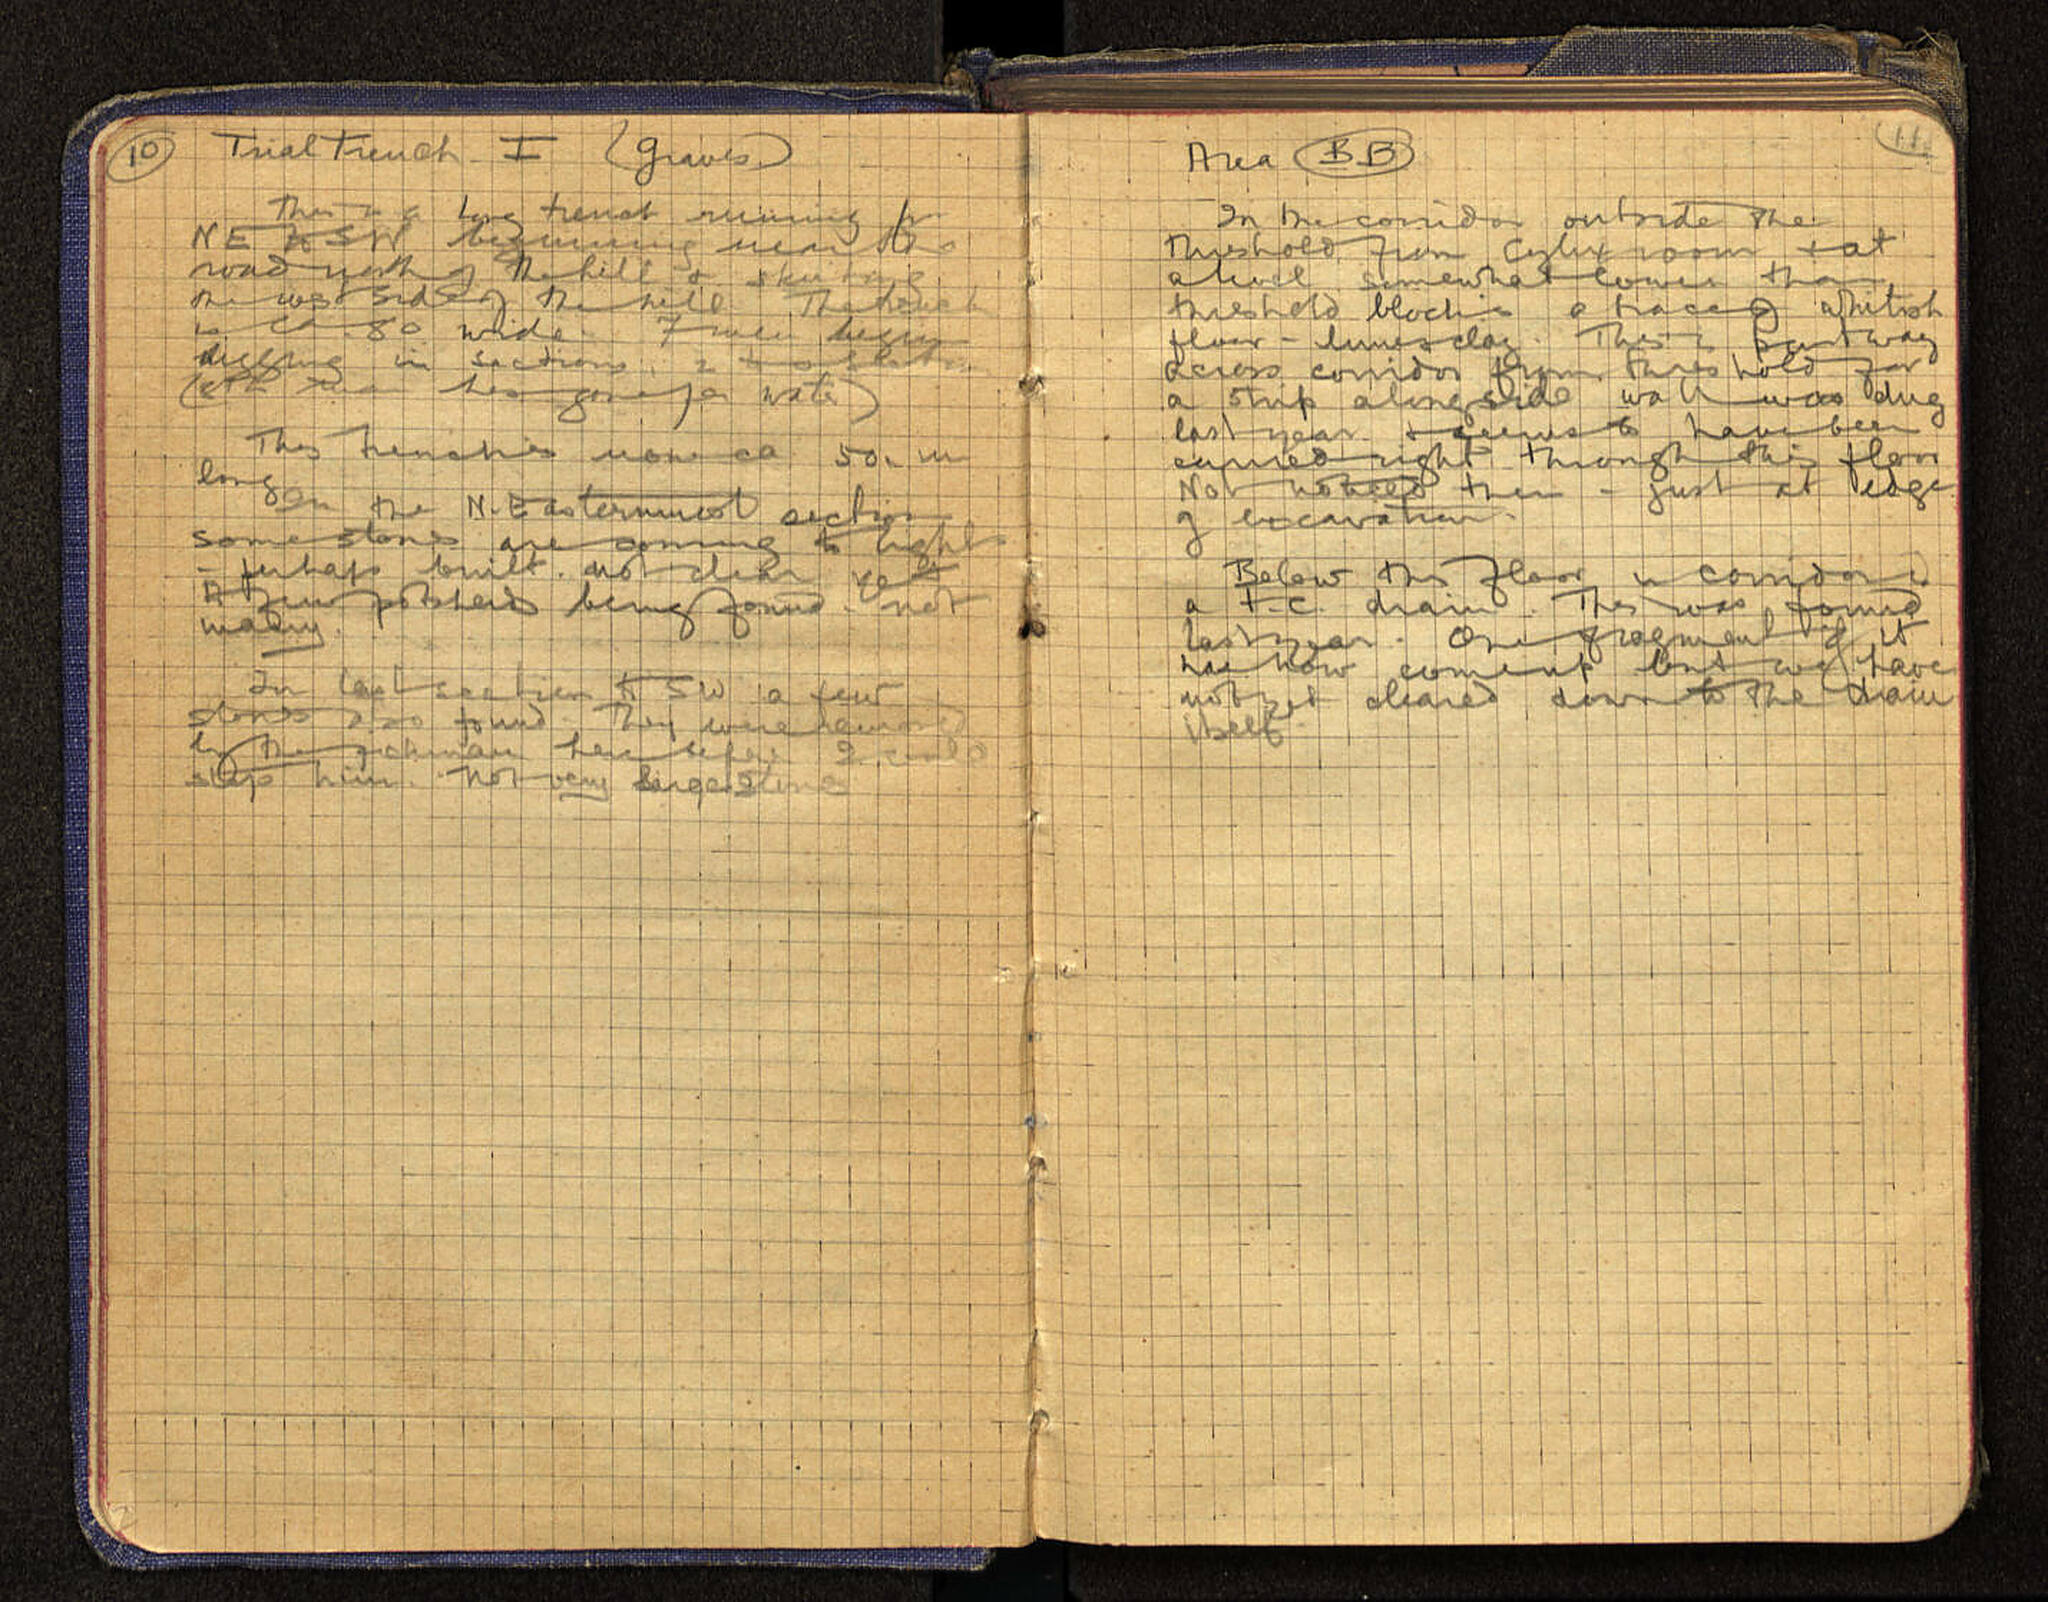 10 Trial Trench I (graves)
This is a long trench running fr
NE to SW beginning near the
road north of the hill & skirting
the west side of the hill The trench
is ca 80 wide. 7 men begin
digging in sections,
(8th man has gone for water)
This trench is now ca 50. m
long
In the N. Easternmost section
some stones are coming to light
- perhaps built. not clear yet
A few potsherds being found - not
many.
In last section to SW a few
stones also found. They were removed
by the pickman here before I could
stop him. Not very large stones
11
Area BB
In the corridor outside the
threshold from Cylix room & at
a level somewhat lower than
threshold block is a trace of whitish
floor - limesclay. This is part way
across corridor from threshold for
a strip alongside wall was dug
last year & seems to have been
carried right through this floor
Not noticed then - just at edge
of excavation.
Below this floor in corridor is
a t.c. drain. This was found
last year. One fragment of it
has now come up but we have
not yet cleared down to the drain
itself.